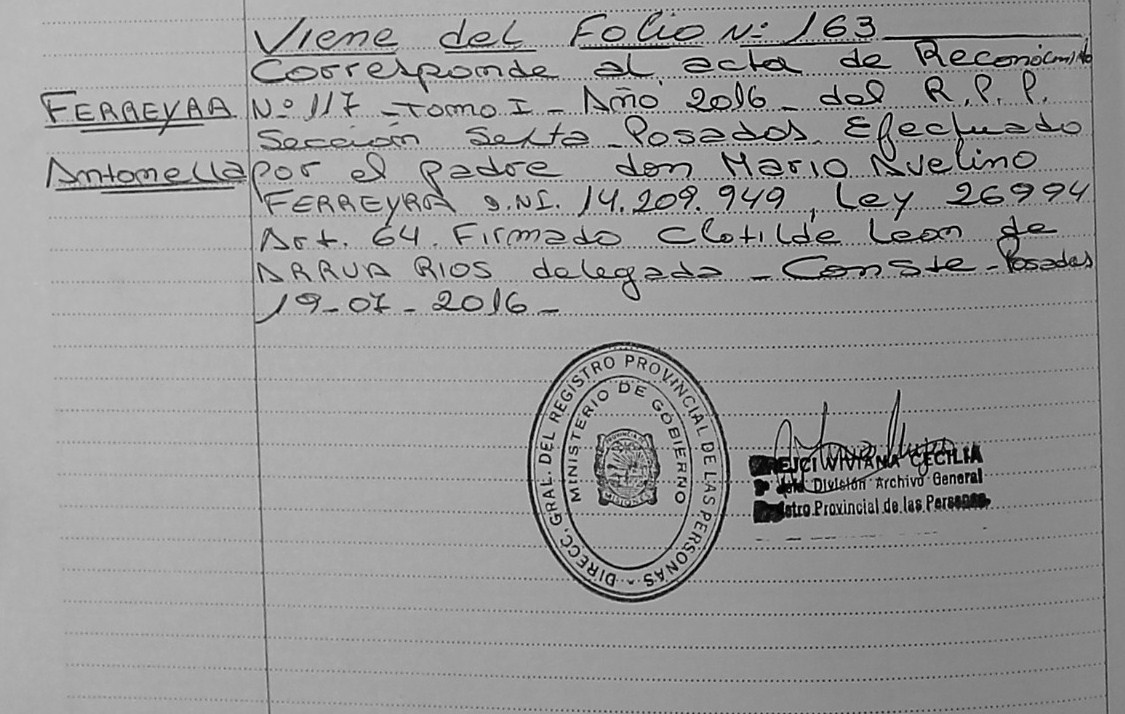 Viene del Folio Nº 163
Corresponde al acta de Reconocimito
FERREYRA Nº 117 - Tomo I - Año 2016 - del R.P.P.
Sección Sexta Posadas. Efectuado
Antonella por el padre don Mario Avelino
FERREYRA D.NI. 14.209.949, Ley 26994
Art. 64. Firmado Clotilde Leon de
ARRUA RIOS delegada - Conste - Posadas
19-07-2016-
DIRECC. GRAL. DEL REGISTRO PROVINCIAL DE LAS PERSONAS
MINISTERIO DE GOBIERNO
PROVINCIA DE
MISIONES
VIVIANA CECILIA
División Archivo General
Provincial de las Personas